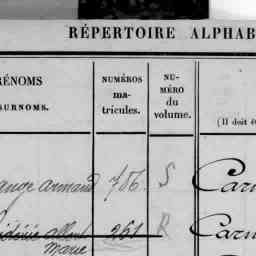 RÉPERTOIRE ALPHAB
RÉNOMS NUMÉROS NU-
ma- MÉRO
SURNOMS. tricules. du
volume. (Il doit ê
ange armand 786. S Car
Albert 261 R Car
Marie